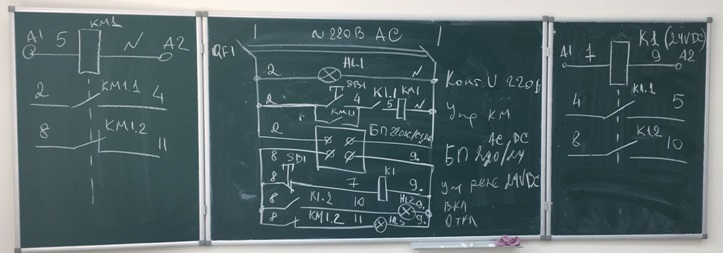 KM1
A1 5 N A2
2 KM1.1 4
8 KM1.2 11
~ 220В AC
QF1
2 HL1 Конт U 220в
SB1
2 4 K1.1 5 KM1 N Упр КМ
KM1.1
2 БП AC DC
8 9 БП 220/24
SD1
8 7 K1 9 упр реле 24VDC
8 K1.2 10 HL2 9 ВКЛ
8 KM1.2 11 HL3 9 ОТКЛ
K1 (24VDC)
A1 7 9 A2
4 K1.1 5
8 K1.2 10